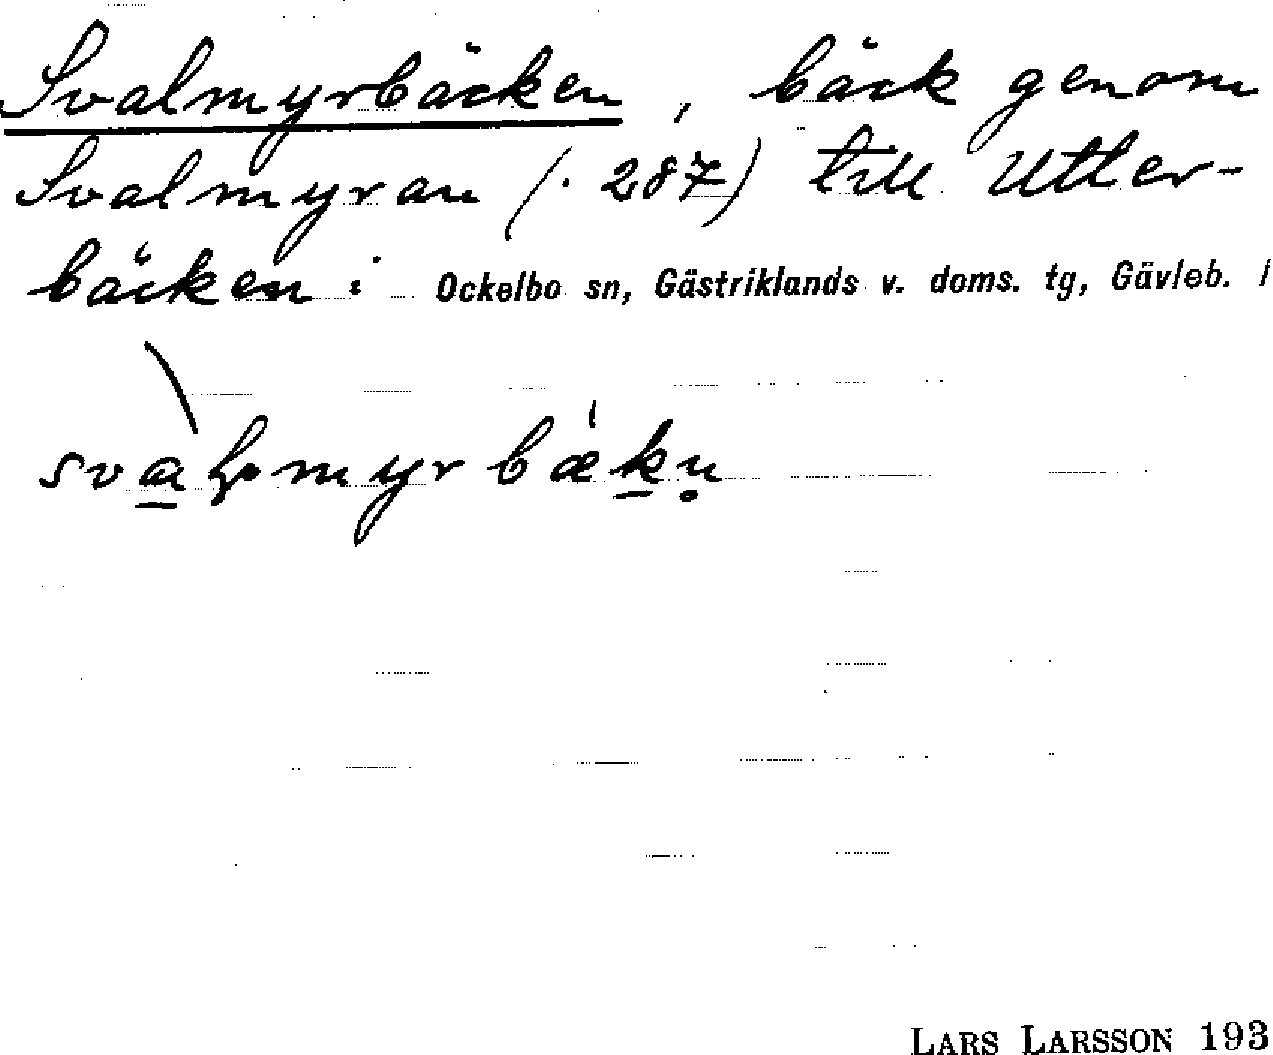 Svalmyrbäcken, bäck genom
Svalmyran (. 287) till Utter-
bäcken: Ockelbo sn, Gästriklands v. doms. tg, Gävleb. l
LARS LARSSON 193